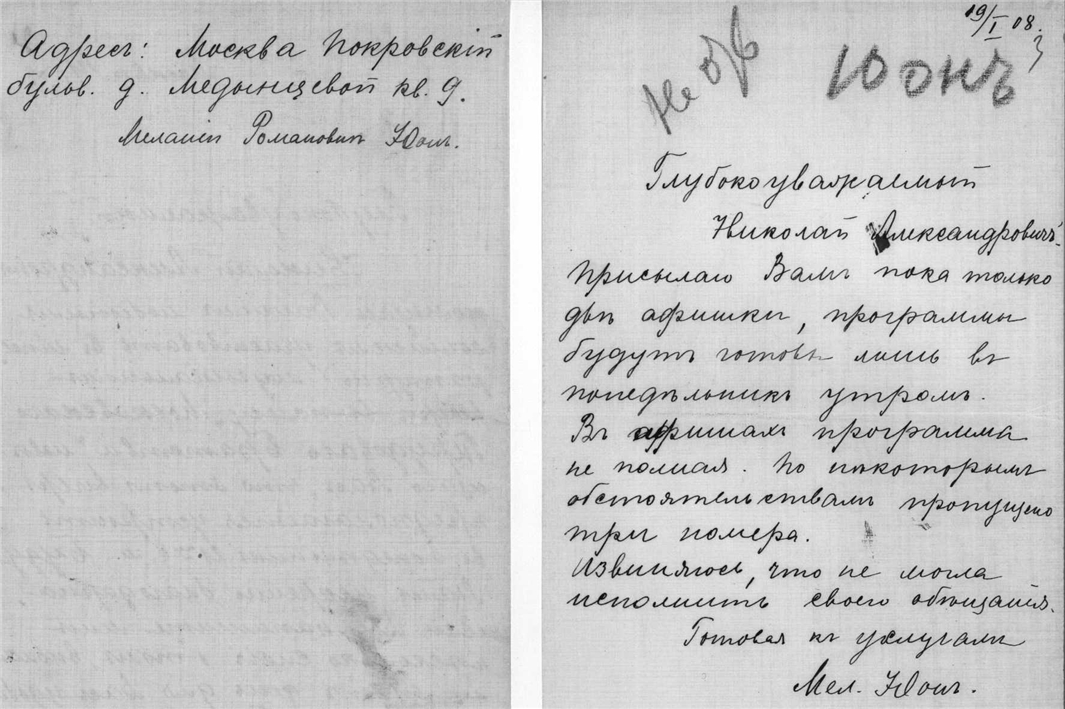 Адресъ: Москва Покровскій
бульв. д. Медынцевой кв. 9.
Меланіи Романовнѣ Юонъ.
19/I 08.
Не отв
Юонъ
Глубокоуважаемый
Николай Александровичъ.
Присылаю Вамъ пока только
двѣ афишки, программы
будутъ готовы лишь въ
понедѣльникъ утромъ.
Въ афишахъ программа
не полная. По нѣкоторымъ
обстоятельствамъ пропущено
три номера.
Извиняюсь, что не могла
исполнить своего обѣщанія.
Готовая къ услугамъ
Мел. Юонъ.